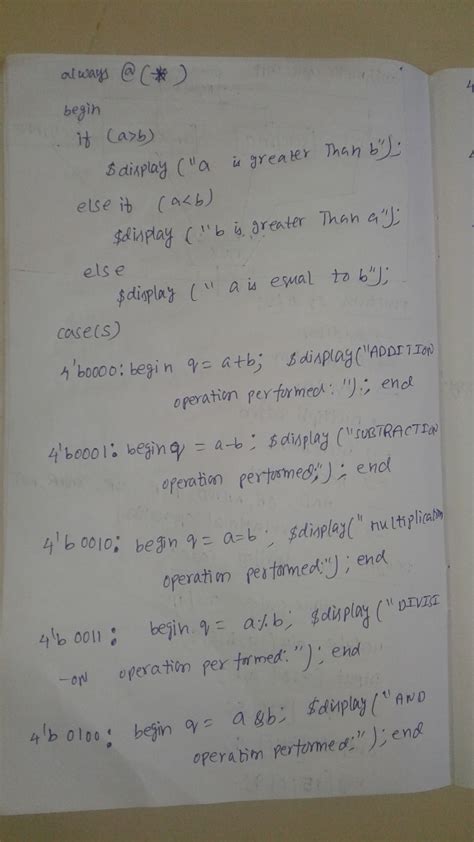 always @ (*)
begin
if (a>b)
$display ("a is greater Than b");
else if (a<b)
$display ("b is greater Than a");
else
$display (" a is equal to b");
case(s)
4'b0000: begin q = a+b; $display("ADDITION
operation performed: ").; end
4'b0001: begin q = a-b ; $display ("SUBTRACTION
operation performed:"); end
4'b 0010: begin q = a=b ; $display(" multiplication
operation performed:"); end
4'b 0011: begin q = a%b; $display ("DIVISI
-ON operation performed:"); end
4'b 0100: begin q = a&b; $display("AND
operation performed:"); end